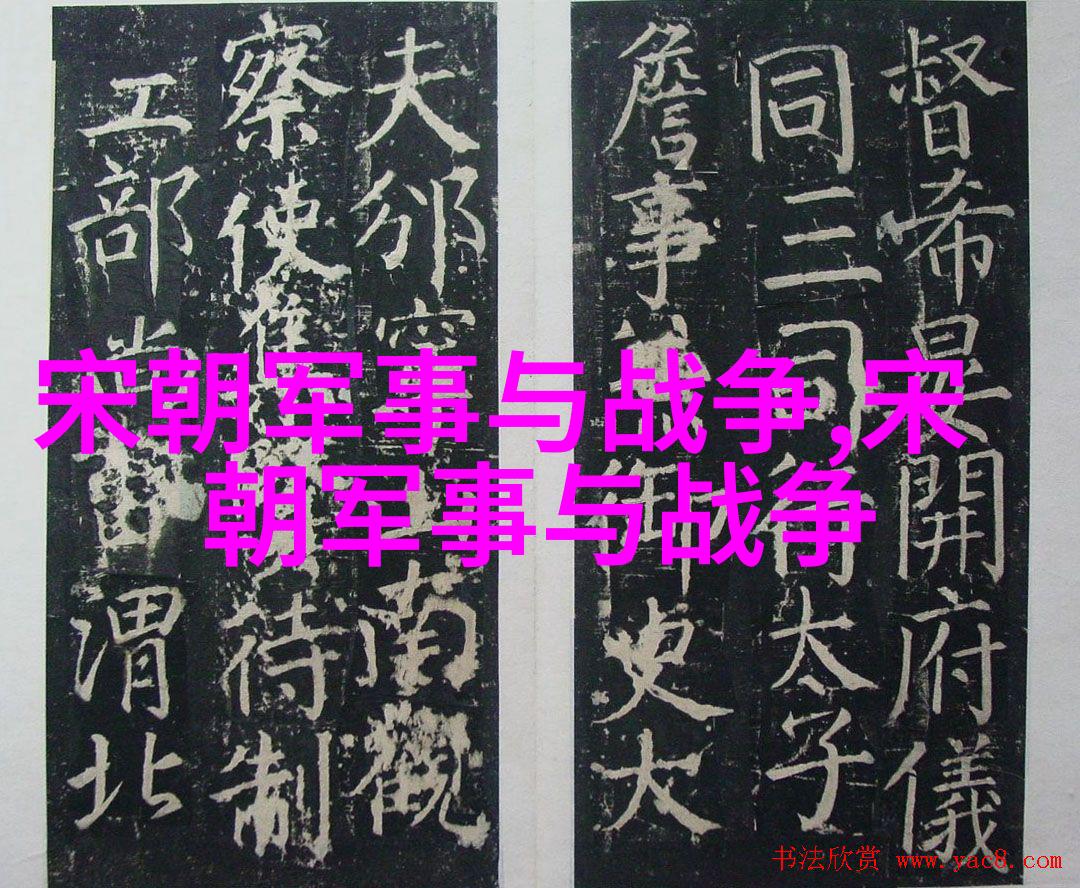 宋朝军事与战争,宋
朝军事与战争
督希晏開府儀
同三司行太子
詹事御史大
夫邠南觀
察使待制
工部渭北
书法欣赏 www.yac8.com